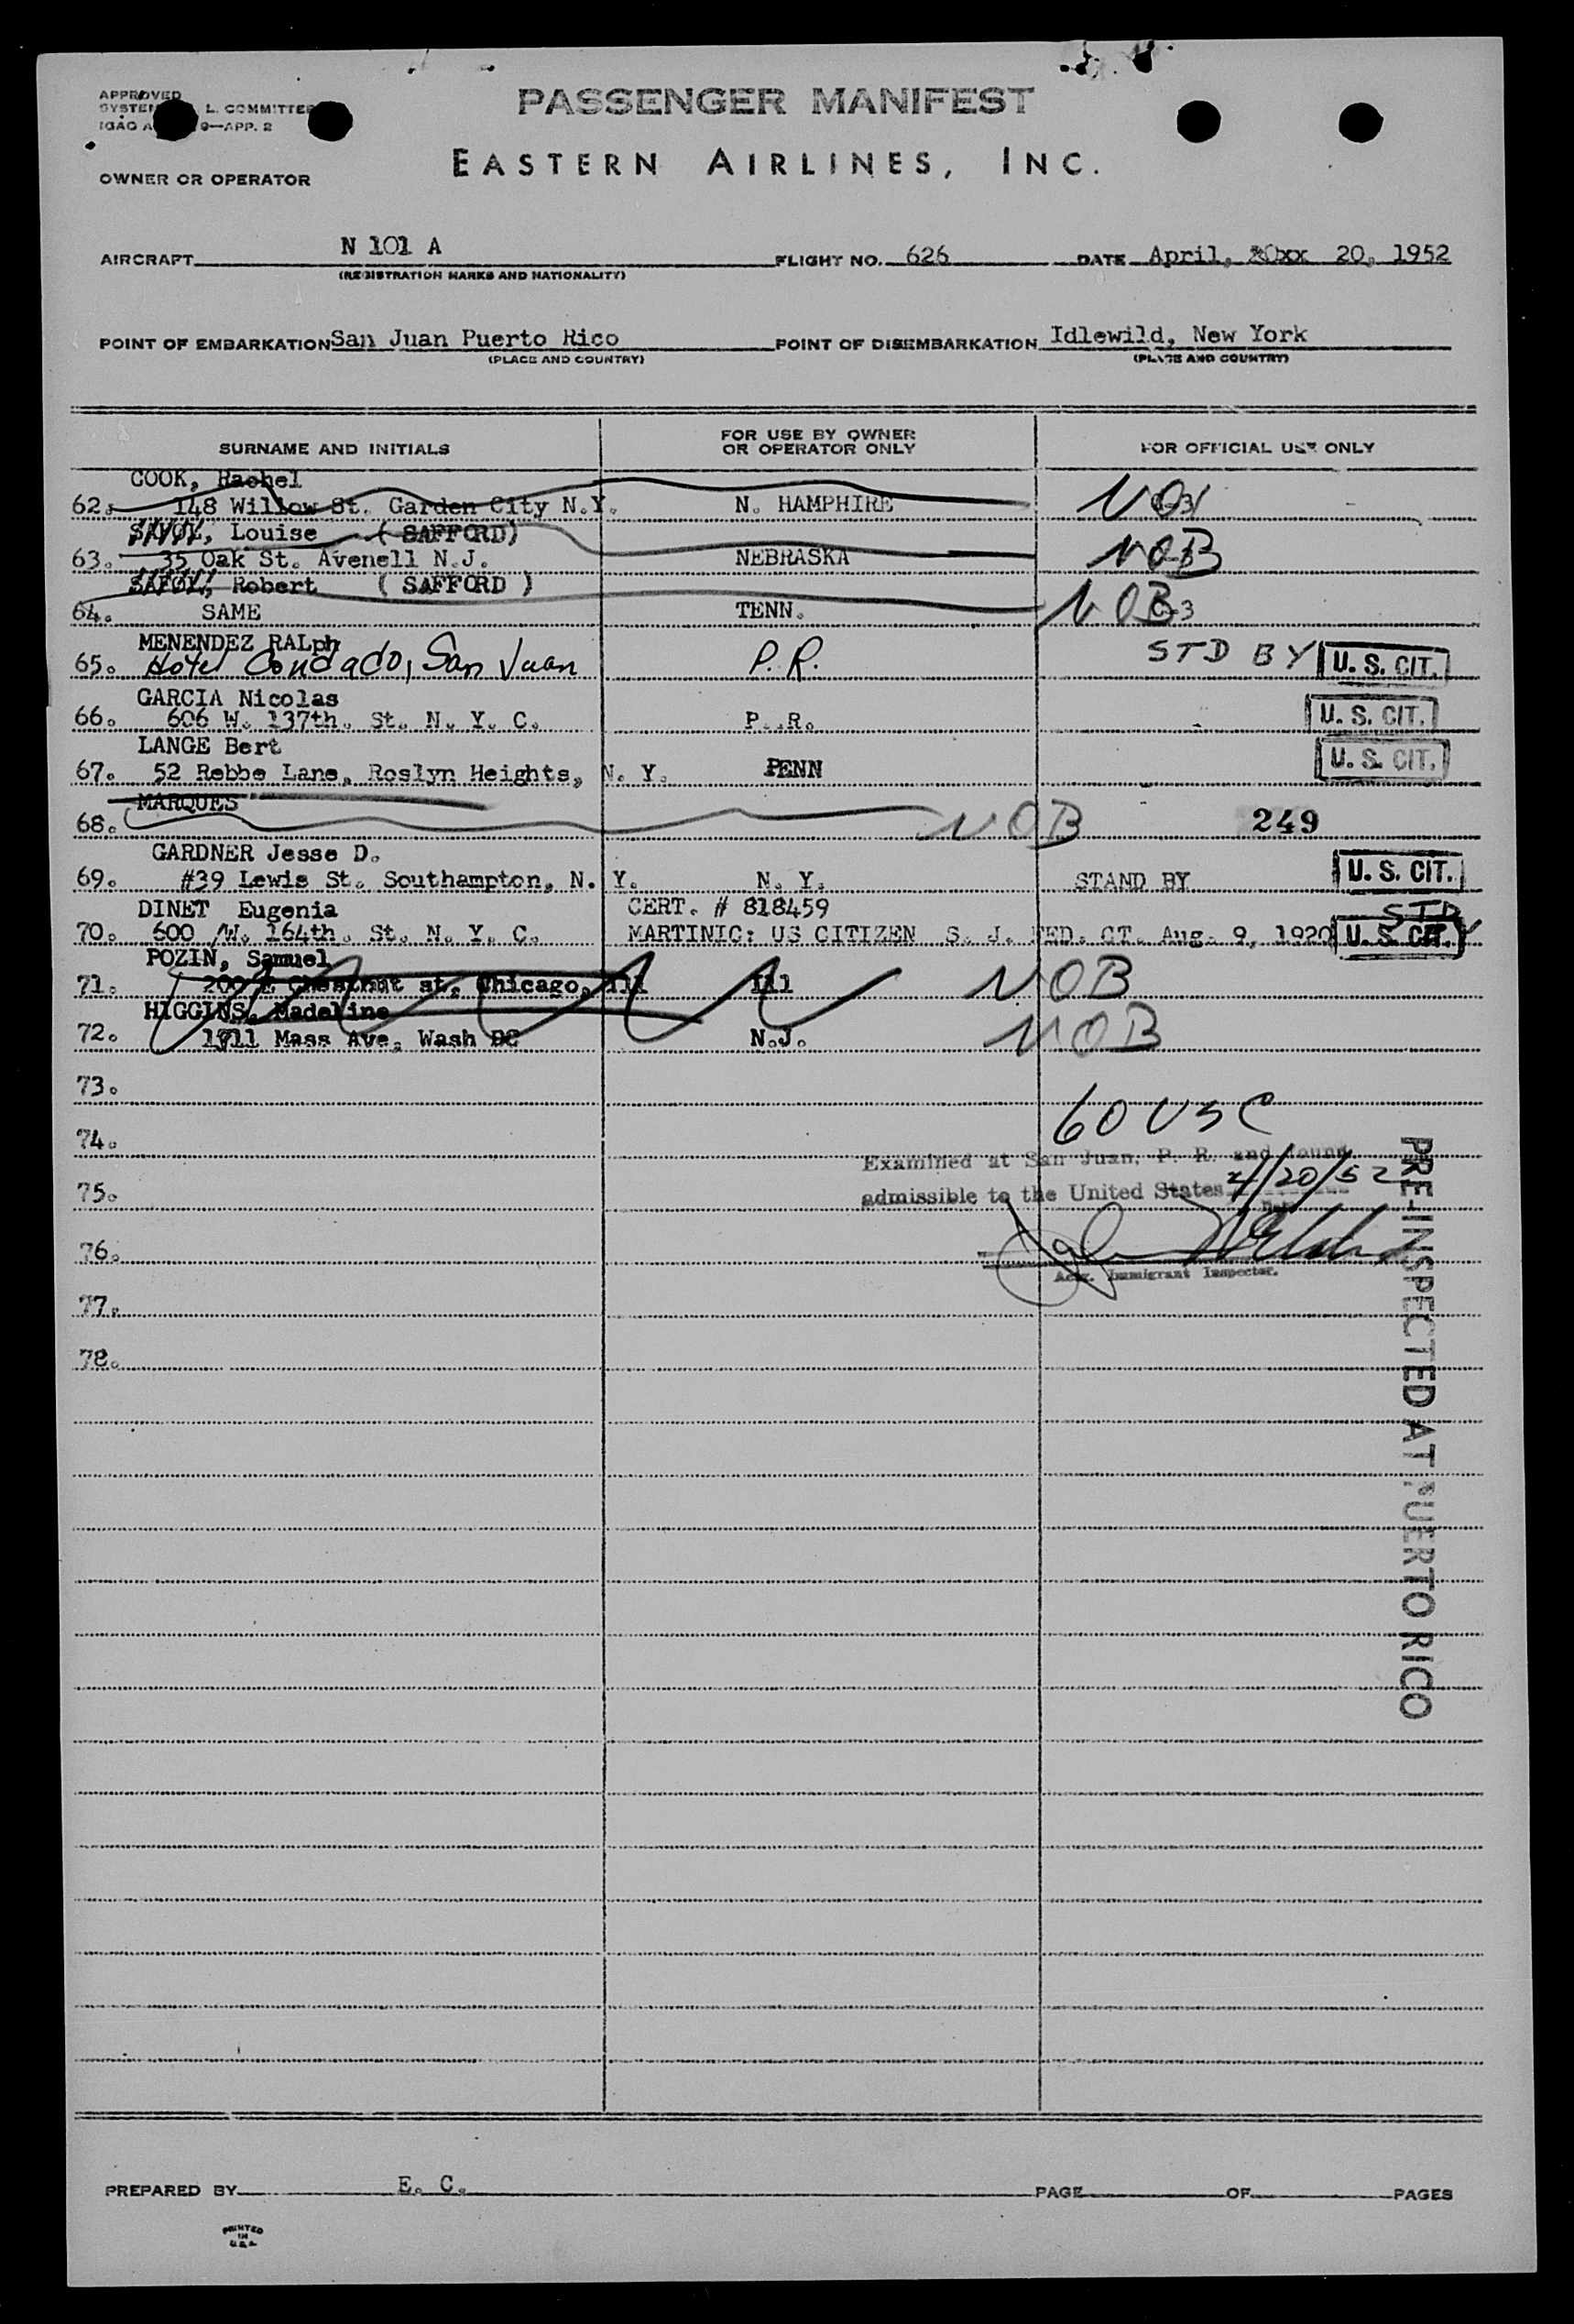 APPROVED
L. COMMITTEE
APP. 2
PASSENGER MANIFEST
OWNER OR OPERATOR
EASTERN AIRLINES, INC.
AIRCRAFT N 101 A FLIGHT NO. 626 DATE April, 20xx 20, 1952
(REGISTRATION MARKS AND NATIONALITY)
POINT OF EMBARKATION San Juan Puerto Rico POINT OF DISEMBARKATION Idlewild, New York
(PLACE AND COUNTRY) (PLACE AND COUNTRY)
SURNAME AND INITIALS FOR USE BY OWNER OR OPERATOR ONLY FOR OFFICIAL USE ONLY
COOK, Rachel
62. 148 Willow St. Garden City N.Y. N. HAMPHIRE
Louise (SAFFORD)
63. 35 Oak St. Avenell N.J. NEBRASKA NOB
Robert ( SAFFORD )
64. SAME TENN. NOB
MENENDEZ RALph
65. Hotel Condado, San Juan P.R. STD BY U. S. CIT.
GARCIA Nicolas
66. 606 W. 137th. St. N. Y. C. P. R. U. S. CIT.
LANGE Bert
67. 52 Rebbe Lane, Roslyn Heights, N. Y. PENN U. S. CIT.
MARQUES
68. NOB 249
GARDNER Jesse D.
69. #39 Lewis St. Southampton, N. Y. N. Y. STAND BY U. S. CIT.
DINET Eugenia CERT. # 818459 STD
70. 600 W. 164th. St. N. Y. C. MARTINIC: US CITIZEN S. J. FED. CT. Aug. 9, 1920 U. S. CIT.
POZIN, Samuel
71. 200 E Chestnut st, Chicago, Ill Ill NOB
HIGGINS, Madeline
72. 1711 Mass Ave, Wash DC N.J. NOB
73.
60 USC
74.
Examined at San Juan, P. R. and found
75. admissible to the United States 4/20/52
76.
Actg. Immigrant Inspector.
77.
78.
PRE-INSPECTED AT PUERTO RICO
PREPARED BY E. C. PAGE OF PAGES
PRINTED
IN
U.S.A.